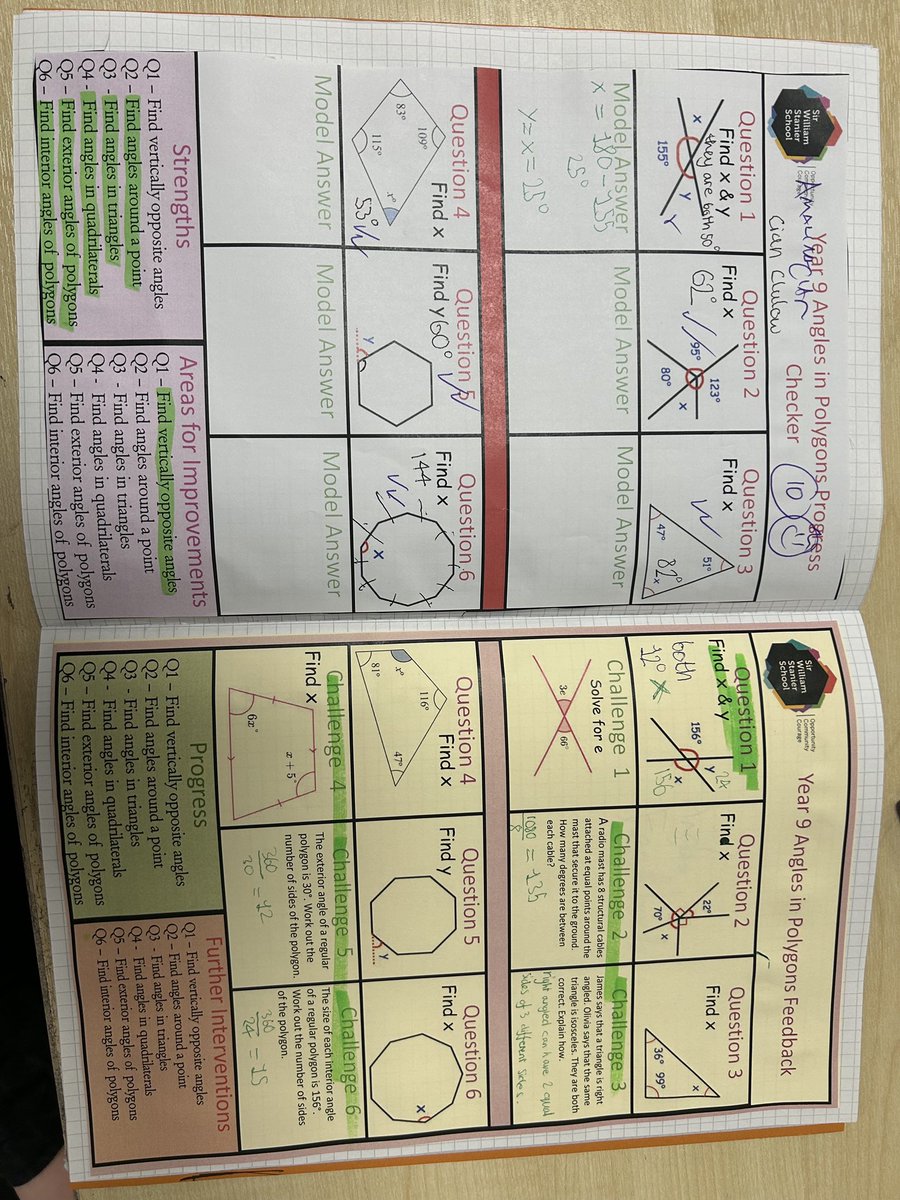 Sir
William
Stanier
School
Year 9 Angles in Polygons Progress
Checker
10
Cian Clulow
Question 1
Find x & y
they are both 50°
x
y
155°
Question 2
Find x
62°
95°
123°
80°
x
Question 3
Find x
51°
47°
82°
x
Model Answer
x = 180 - 155
25°
y = x = 25°
Model Answer
Model Answer
Question 4
Find x
83°
109°
115°
x°
53°
Question 5
Find y
60°
y
Question 6
Find x
144
x
Model Answer
Model Answer
Model Answer
Strengths
Q1 – Find vertically opposite angles
Q2 – Find angles around a point
Q3 - Find angles in triangles
Q4 - Find angles in quadrilaterals
Q5 – Find exterior angles of polygons
Q6 – Find interior angles of polygons
Areas for Improvements
Q1 – Find vertically opposite angles
Q2 – Find angles around a point
Q3 - Find angles in triangles
Q4 - Find angles in quadrilaterals
Q5 – Find exterior angles of polygons
Q6 – Find interior angles of polygons
Sir
William
Stanier
School
Opportunity
Community
Courage
Year 9 Angles in Polygons Feedback
Question 1
Find x & y
both
12°
156°
y
24
x
156
Question 2
Find x
22°
70°
x
Question 3
Find x
36°
99°
x
Challenge 1
Solve for e
3e
66°
Challenge 2
A radio mast has 8 structural cables
attached at equal points around the
mast that secure it to the ground.
How many degrees are between
each cable?
1080
8
= 135
Challenge 3
James says that a triangle is right
angled. Olivia says that the same
triangle is isosceles. They are both
correct. Explain how.
right angled can have 2 equal
sides of 3 different sides.
Question 4
Find x
x°
116°
81°
47°
Question 5
Find y
y
Question 6
Find x
x
Challenge 4
Find x
x + 5
6x°
Challenge 5
The exterior angle of a regular
polygon is 30°. Work out the
number of sides of the polygon.
360
30
= 12
Challenge 6
The size of each interior angle
of a regular polygon is 156°.
Work out the number of sides
of the polygon.
360
24
= 15
Progress
Q1 – Find vertically opposite angles
Q2 – Find angles around a point
Q3 - Find angles in triangles
Q4 - Find angles in quadrilaterals
Q5 – Find exterior angles of polygons
Q6 – Find interior angles of polygons
Further Interventions
Q1 – Find vertically opposite angles
Q2 – Find angles around a point
Q3 - Find angles in triangles
Q4 - Find angles in quadrilaterals
Q5 – Find exterior angles of polygons
Q6 – Find interior angles of polygons